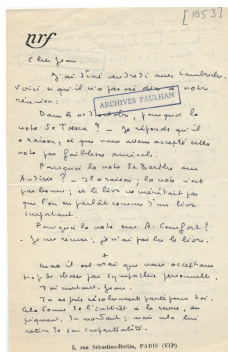 [1953]
nrf
Cher Jean,
J'ai dîné vendredi avec Lambrichs.
Voici ce qu'il n'a pas osé dire à notre
réunion:
ARCHIVES PAULHAN
Dans le n° d'octobre, pourquoi la
note de ? — Je réponds qu'il
a raison, et que nous avons accepté cette
note par faiblesse amicale.
Pourquoi la note de Barthes sur
? — Il a raison; la note n'est
pas bonne; et le livre ne méritait pas
que l'on en parlât comme d'un livre
important.
Pourquoi la note sur A. Comfort?
- Je me renseigne, je n'ai pas lu le livre.
+
mais il est vrai que nous acceptons
trop de choses par sympathie personnelle.
Toi autant que
Tu as pris résolument parti pour toi.
Cela donne de l'intérêt à la revue, du
piquant, du mordant; mais cela lui
retire de son impartialité.
5, rue Sébastien-Bottin, PARIS (VIIᵉ)